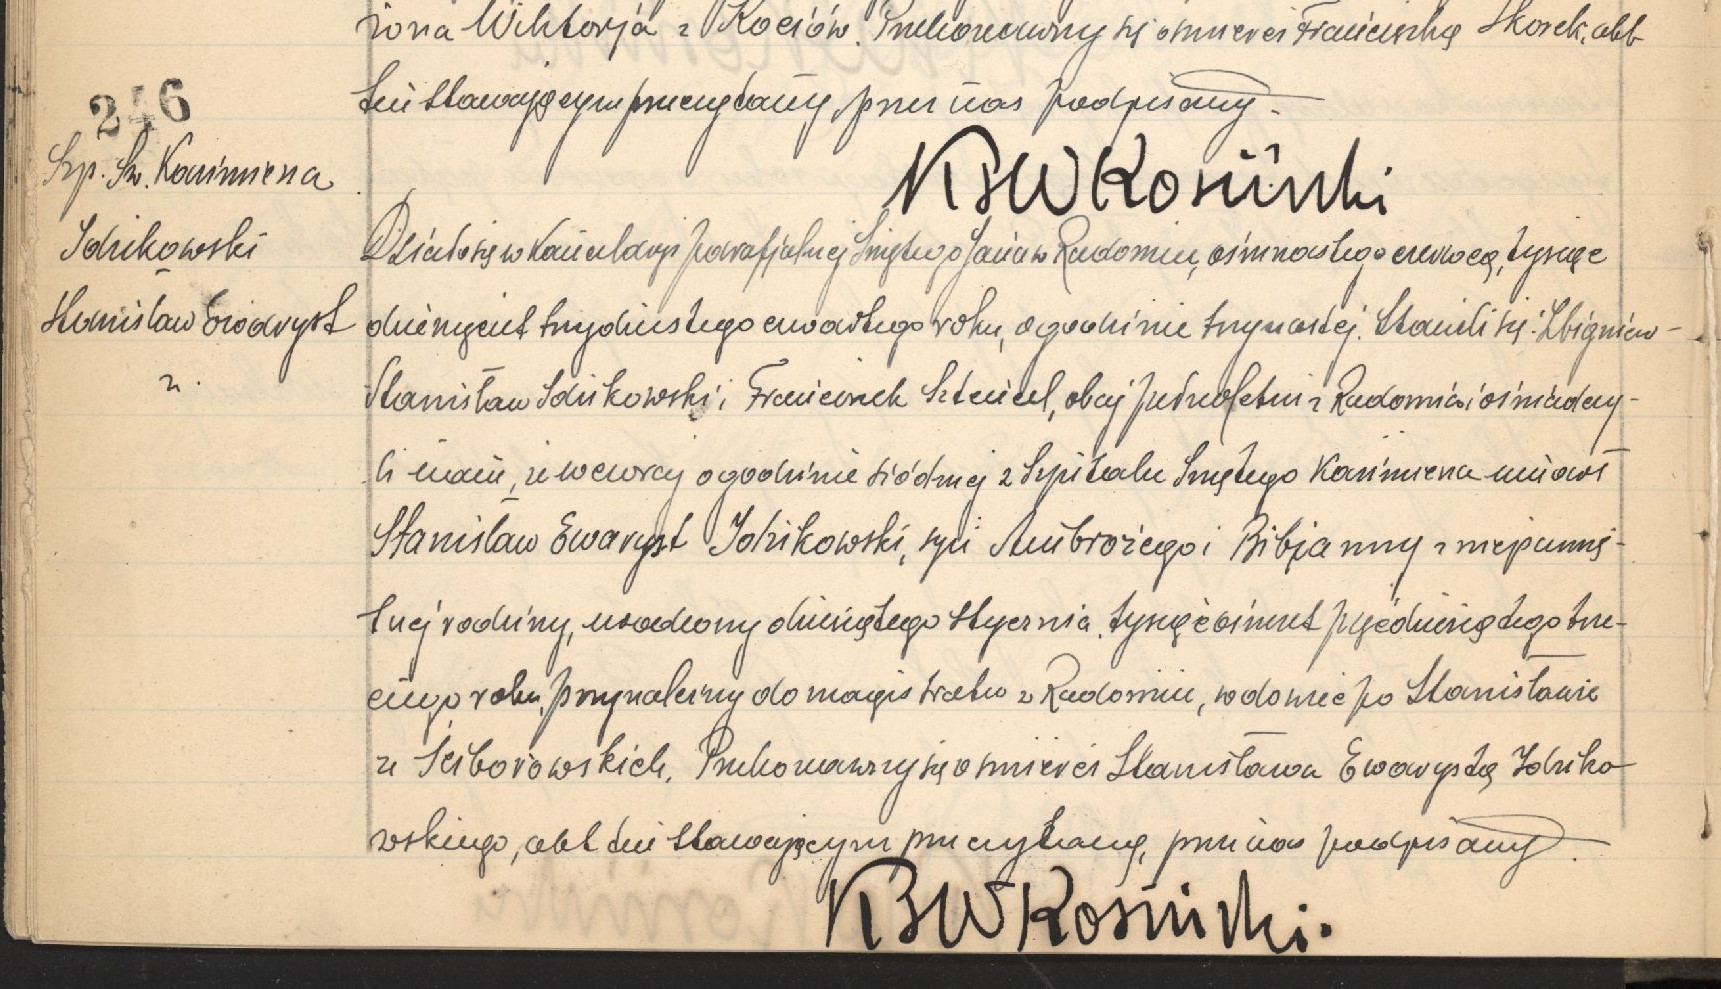 żona Wiktorja z Kociów. Przekonawszy się o śmierci Franciszka Skorek, akt
ten stawającym przeczytany, przez nas podpisany.
KBWKosiński
246
Szp. Św. Kazimierza
Idzikowski
Stanisław Ewaryst
z.
Działo się w Kancelarji parafjalnej Świętego Jana w Radomiu, ośmnastego czerwca, tysiąc
dziewięćset trzydziestego czwartego roku, o godzinie trzynastej. Stawili się: Zbigniew-
Stanisław Idzikowski i Franciszek Sztencel, obaj pełnoletni z Radomia i oświadczy-
li nam, że wczoraj o godzinie siódmej z Szpitalu Świętego Kazimierza umarł
Stanisław Ewaryst Idzikowski, syn Ambrożego i Bibjanny z niepamię-
tnej rodziny, urodzony dziesiątego stycznia, tysiąc ośmset pięćdziesiątego trze-
ciego roku, przynależny do magistratu w Radomiu, wdowiec po Stanisławie
ze Ściborowskich. Przekonawszy się o śmierci Stanisława Ewarysta Idziko-
wskiego, akt ten stawającym przeczytany, przez nas podpisany.
KBWKosiński.